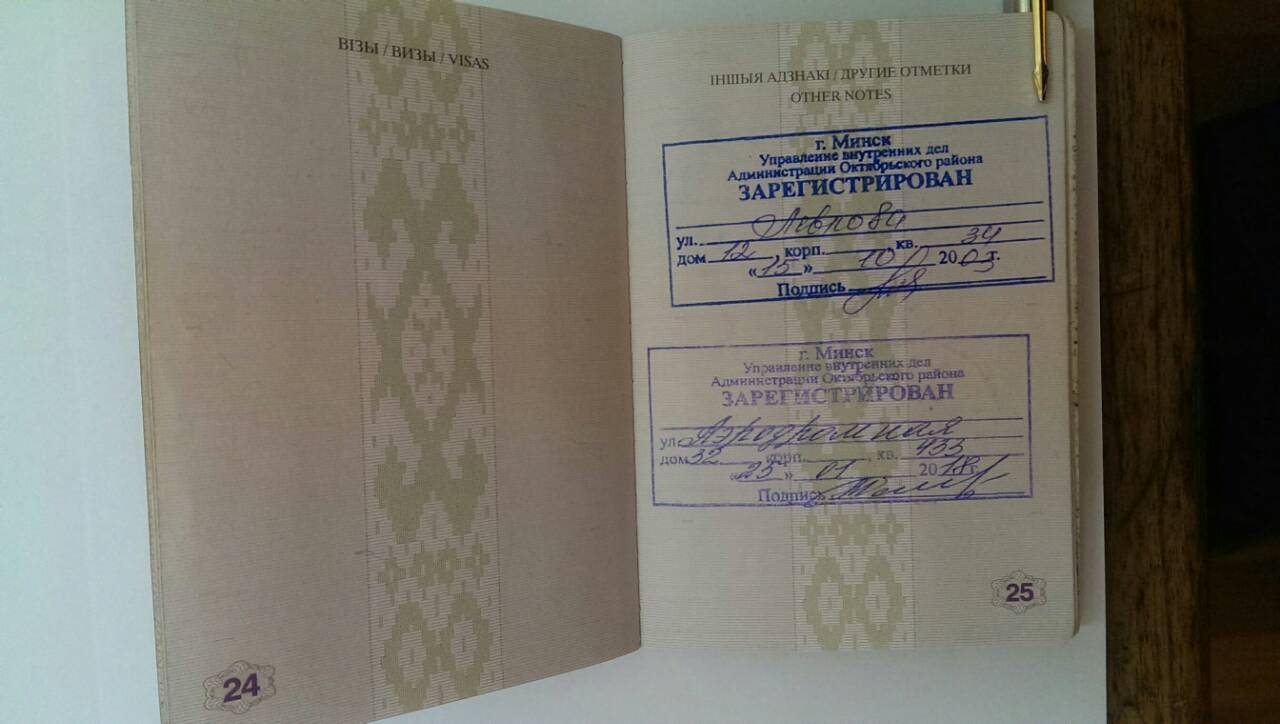 ВІЗЫ / ВИЗЫ / VISAS
24
ІНШЫЯ АДЗНАКІ / ДРУГИЕ ОТМЕТКИ
OTHER NOTES
г. Минск
Управление внутренних дел
Администрации Октябрьского района
ЗАРЕГИСТРИРОВАН
ул.
дом 12, корп. , кв. 34
«15» 10 2003 г.
Подпись
г. Минск
Управление внутренних дел
Администрации Октябрьского района
ЗАРЕГИСТРИРОВАН
ул. Аэродромная
дом 32 корп. , кв. 433
«23» 01 2018 г.
Подпись
25